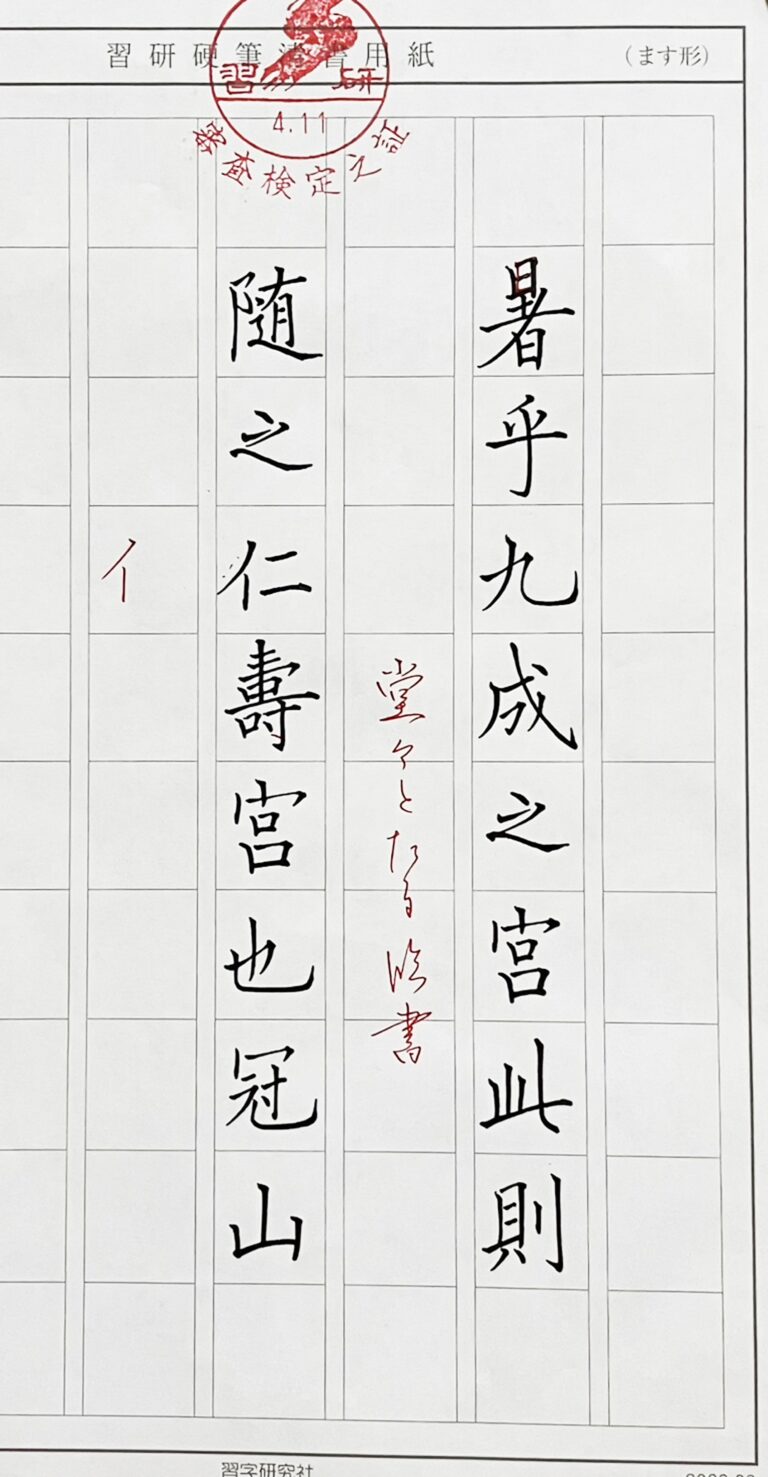 習研硬筆清書用紙
(ます形)
習研
4.11
審査検定之証
暑乎九成之宮此則
堂々とたる臨書
随之仁壽宮也冠山
イ
習字研究社